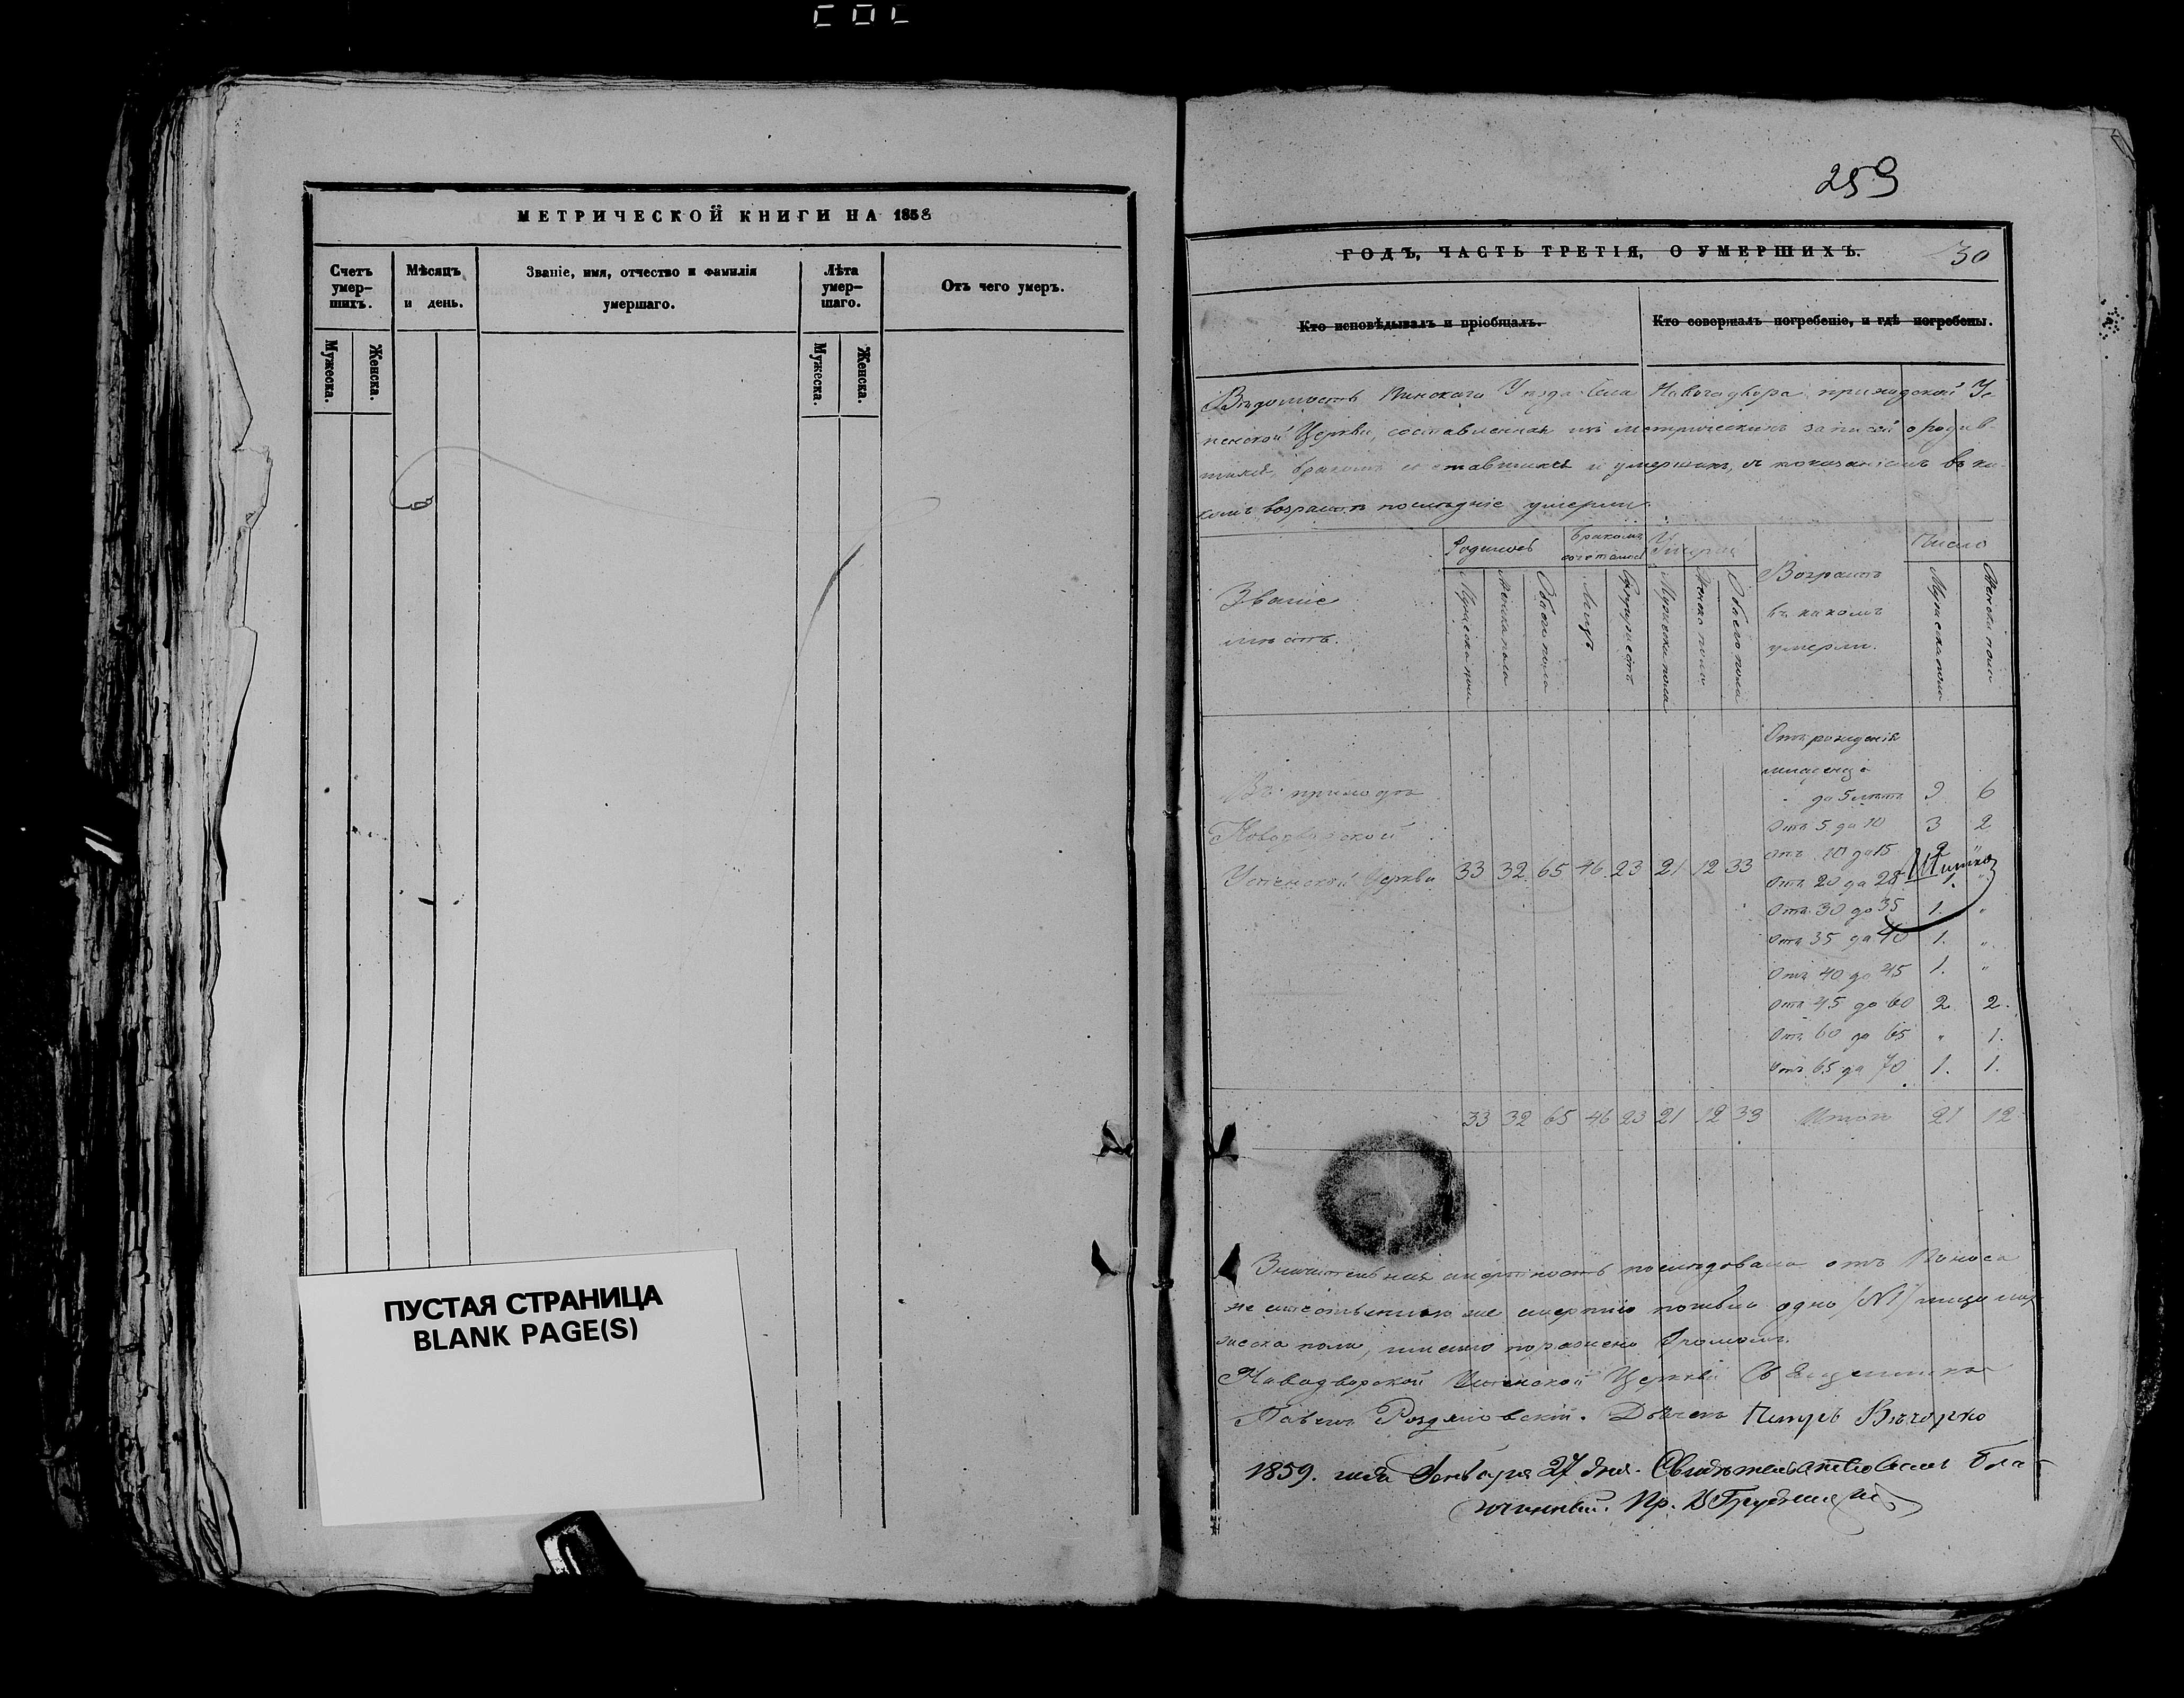 МЕТРИЧЕСКОЙ КНИГИ НА 1858
Счетъ умер-шихъ.
Мѣсяцъ и день.
Званіе, имя, отчество и фамилія умершаго.
Лѣта умер-шаго.
Отъ чего умеръ.
Мужеска.
Женска.
Мужеска.
Женска.
ПУСТАЯ СТРАНИЦА
BLANK PAGE(S)
259
ГОДЪ, ЧАСТЬ ТРЕТІЯ, О УМЕРШИХЪ.
30
Кто исповѣдывалъ и пріобщалъ.
Кто совершалъ погребеніе, и гдѣ погребены.
Вѣдомость Пинскаго Уѣзда Села Новагодвора приходской Ус
пенской Церкви, составленная изъ метрическихъ записей о родив-
шихся, бракомъ сочетавшихся и умершихъ, съ показаніемъ въ ка-
комъ возрастѣ послѣдніе умерли.
Званіе мѣстъ.
Родилось
Бракомъ сочеталось
Умерли
Возрастъ въ какомъ умерли.
Число
Мужеска пола
Женска пола
Обоего пола
Лицъ
Супружествъ
Мужеска пола
Женска пола
Обоего пола
Мужеска пола
Женска пола
Отъ рожденія
младенца
до 5 лѣтъ 9 6
Въ приходѣ
Новодворской
Успенской Церкви 33 32 65 46 23 21 12 33
Отъ 5 до 10 3 2
Отъ 10 до 15 2 "
Отъ 20 до 25 1. "
Отъ 30 до 35 1. "
Отъ 35 до 40 1. "
Отъ 40 до 45 1. "
Отъ 45 до 60 2 2.
Отъ 60 до 65 " 1.
Отъ 65 до 70 1. 1.
33 32 65 46 23 21 12 33 Итого 21 12
Значительная смертность послѣдовала отъ Поноса
не естественною же смертію погибло одно /№1/ лице му-
жеска пола, именно поражено Громомъ.
Новодворской Успенской Церкви Священникъ
Павелъ Дьячекъ Петръ
1859. года Января 27 дня. Свидѣтельствовалъ Бла-
гочинный. Пр.